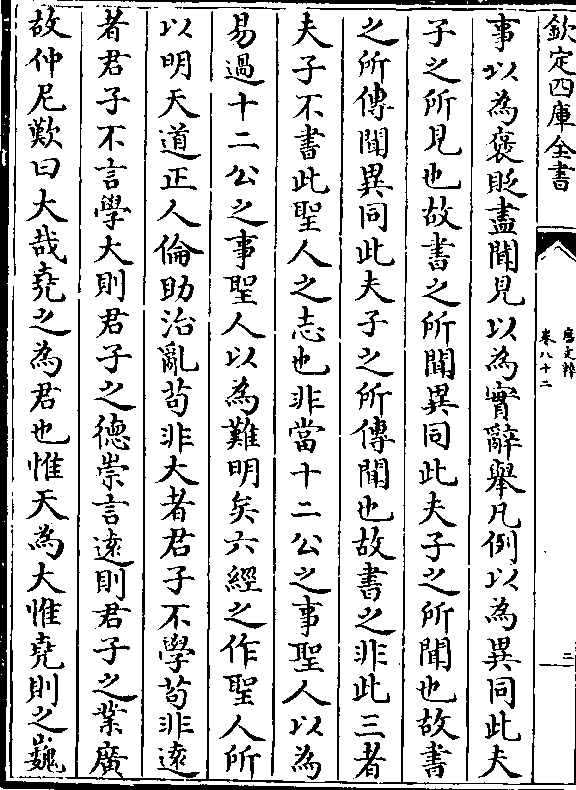 欽定四庫全書
唐文粹
卷八十二
三
事以為褒貶盡聞見以為實辭舉凡例以為異同此夫
子之所見也故書之所聞異同此夫子之所聞也故書
之所傳聞異同此夫子之所傳聞也故書之非此三者
夫子不書此聖人之志也非當十二公之事聖人以為
易過十二公之事聖人以為難明矣六經之作聖人所
以明天道正人倫助治亂苟非大者君子不學苟非遠
者君子不言學大則君子之德崇言遠則君子之業廣
故仲尼歎曰大哉堯之為君也惟天為大惟堯則之巍